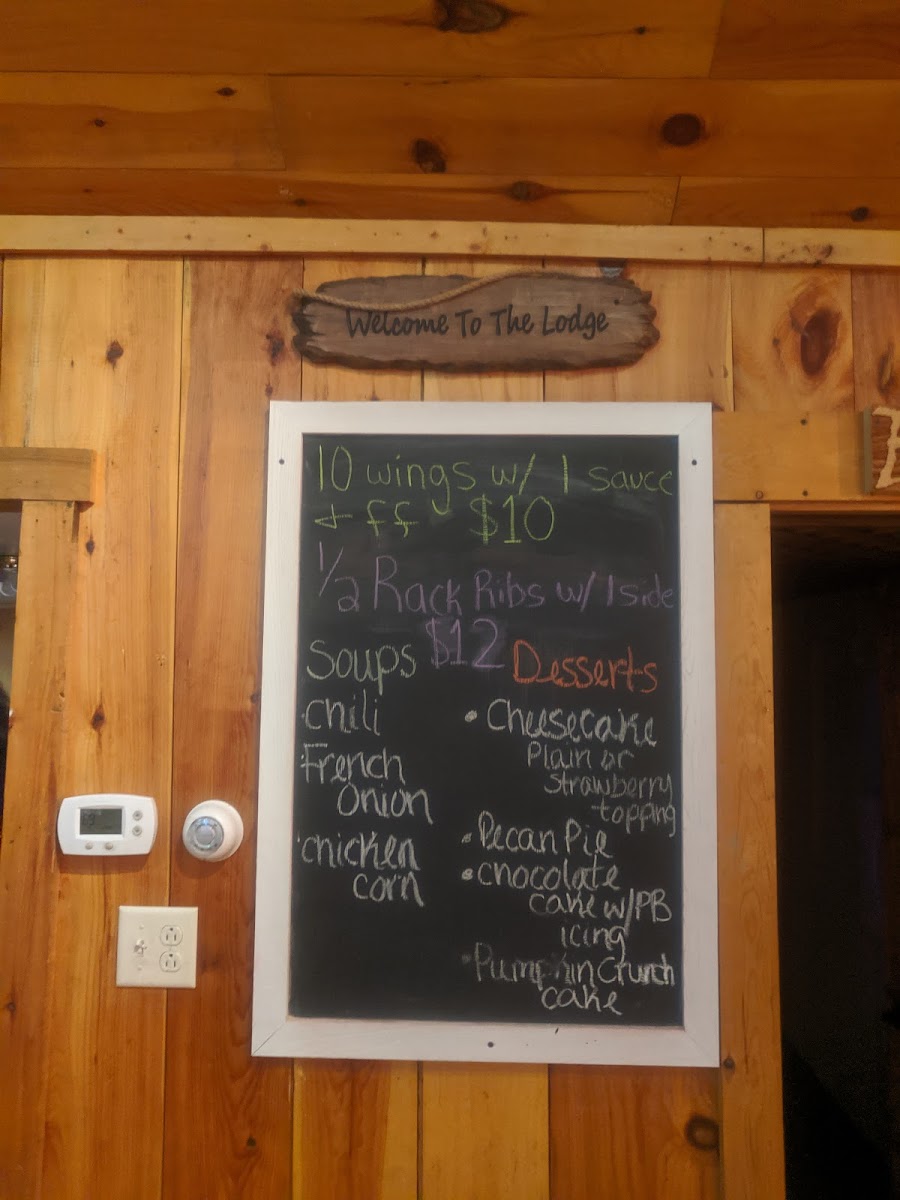 Welcome To The Lodge
10 wings w/ 1 sauce
+ ff $10
1/2 Rack Ribs w/ 1 side
$12
Soups
chili
French
Onion
chicken
corn
Desserts
• Cheesecake
Plain or
Strawberry
topping
• Pecan Pie
• chocolate
cake w/ PB
icing
• Pumpkin Crunch
cake